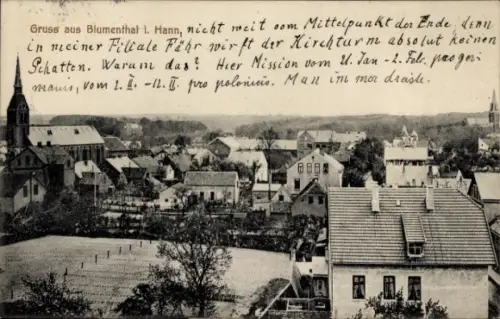 Gruss aus Blumenthal i. Hann, nicht weit vom Mittelpunkt der Erde, denn
in meiner Filiale Fähr wirft der Kirchturm absolut keinen
Schatten. Warum das? Hier Mission vom 21. Jan - 2. Febr. pro
vom 2. II. - 12. II. pro polonius. Man